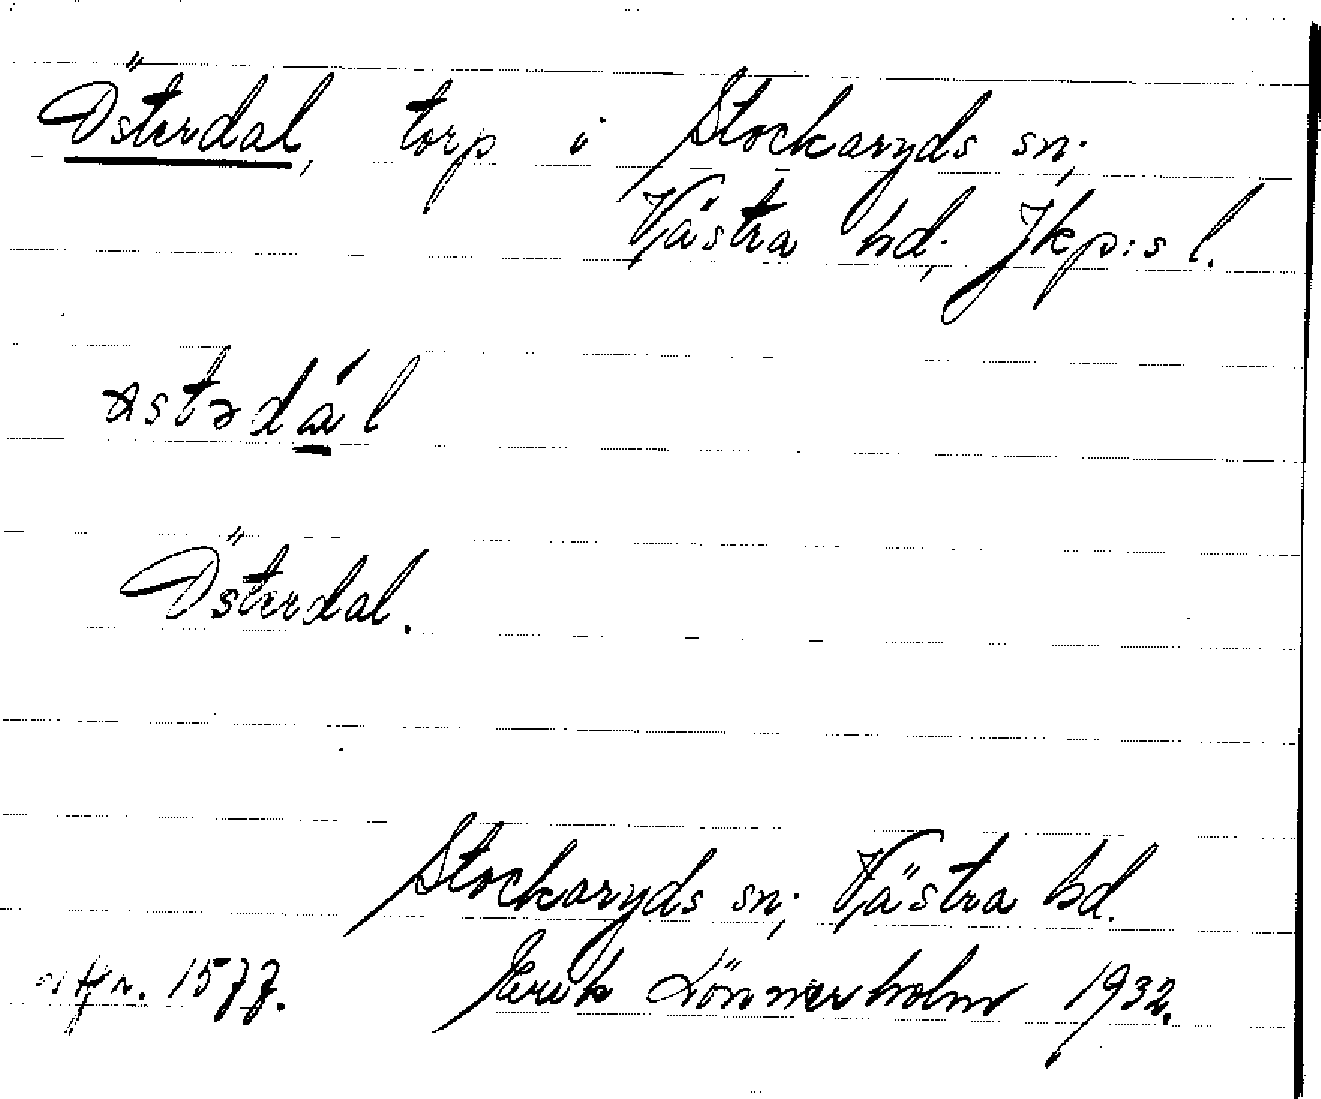 Österdal, torp i Stockaryds sn;
Västra hd; Jkp:s l.
østədál
Österdal.
Stockaryds sn; Västra hd.
1577. Erik Lönnerholm 1932.